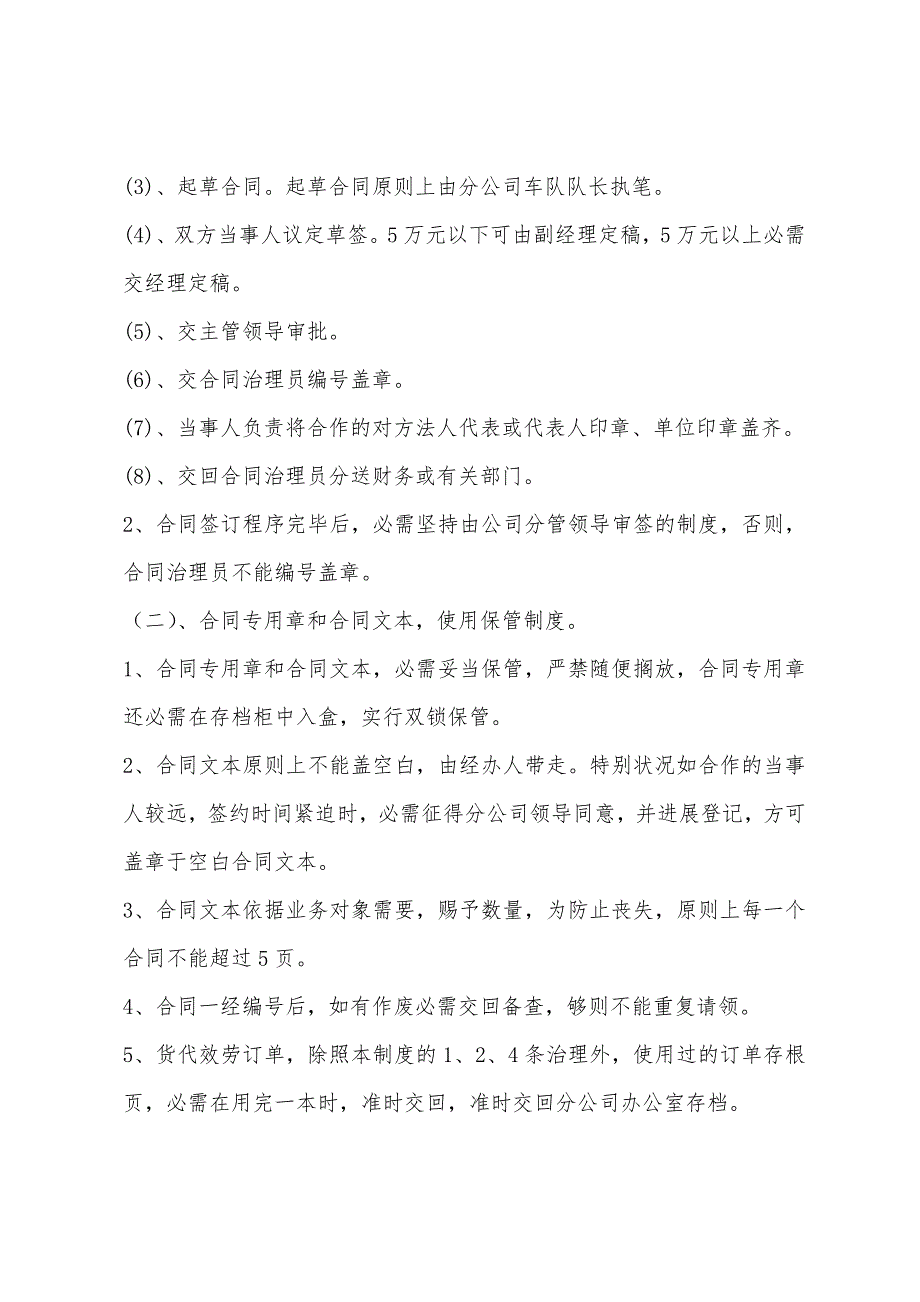 (3)、起草合同。起草合同原则上由分公司车队队长执笔。
(4)、双方当事人议定草签。5万元以下可由副经理定稿，5万元以上必需
交经理定稿。
(5)、交主管领导审批。
(6)、交合同治理员编号盖章。
(7)、当事人负责将合作的对方法人代表或代表人印章、单位印章盖齐。
(8)、交回合同治理员分送财务或有关部门。
2、合同签订程序完毕后，必需坚持由公司分管领导审签的制度，否则，
合同治理员不能编号盖章。
（二）、合同专用章和合同文本，使用保管制度。
1、合同专用章和合同文本，必需妥当保管，严禁随便搁放，合同专用章
还必需在存档柜中入盒，实行双锁保管。
2、合同文本原则上不能盖空白，由经办人带走。特别状况如合作的当事
人较远，签约时间紧迫时，必需征得分公司领导同意，并进展登记，方可
盖章于空白合同文本。
3、合同文本依据业务对象需要，赐予数量，为防止丧失，原则上每一个
合同不能超过5页。
4、合同一经编号后，如有作废必需交回备查，够则不能重复请领。
5、货代效劳订单，除照本制度的1、2、4条治理外，使用过的订单存根
页，必需在用完一本时，准时交回，准时交回分公司办公室存档。